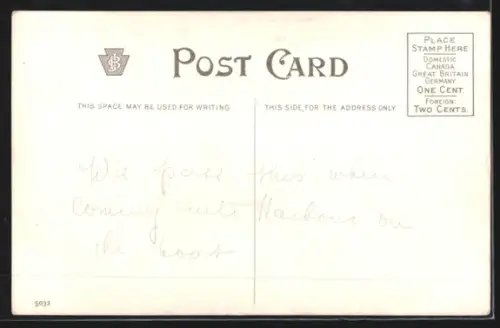 POST CARD
PLACE
STAMP HERE
DOMESTIC
CANADA
GREAT BRITAIN
GERMANY
ONE CENT.
FOREIGN
TWO CENTS.
THIS SPACE MAY BE USED FOR WRITING
THIS SIDE FOR THE ADDRESS ONLY
We pass this when
coming into Harbour on
the boat
5032